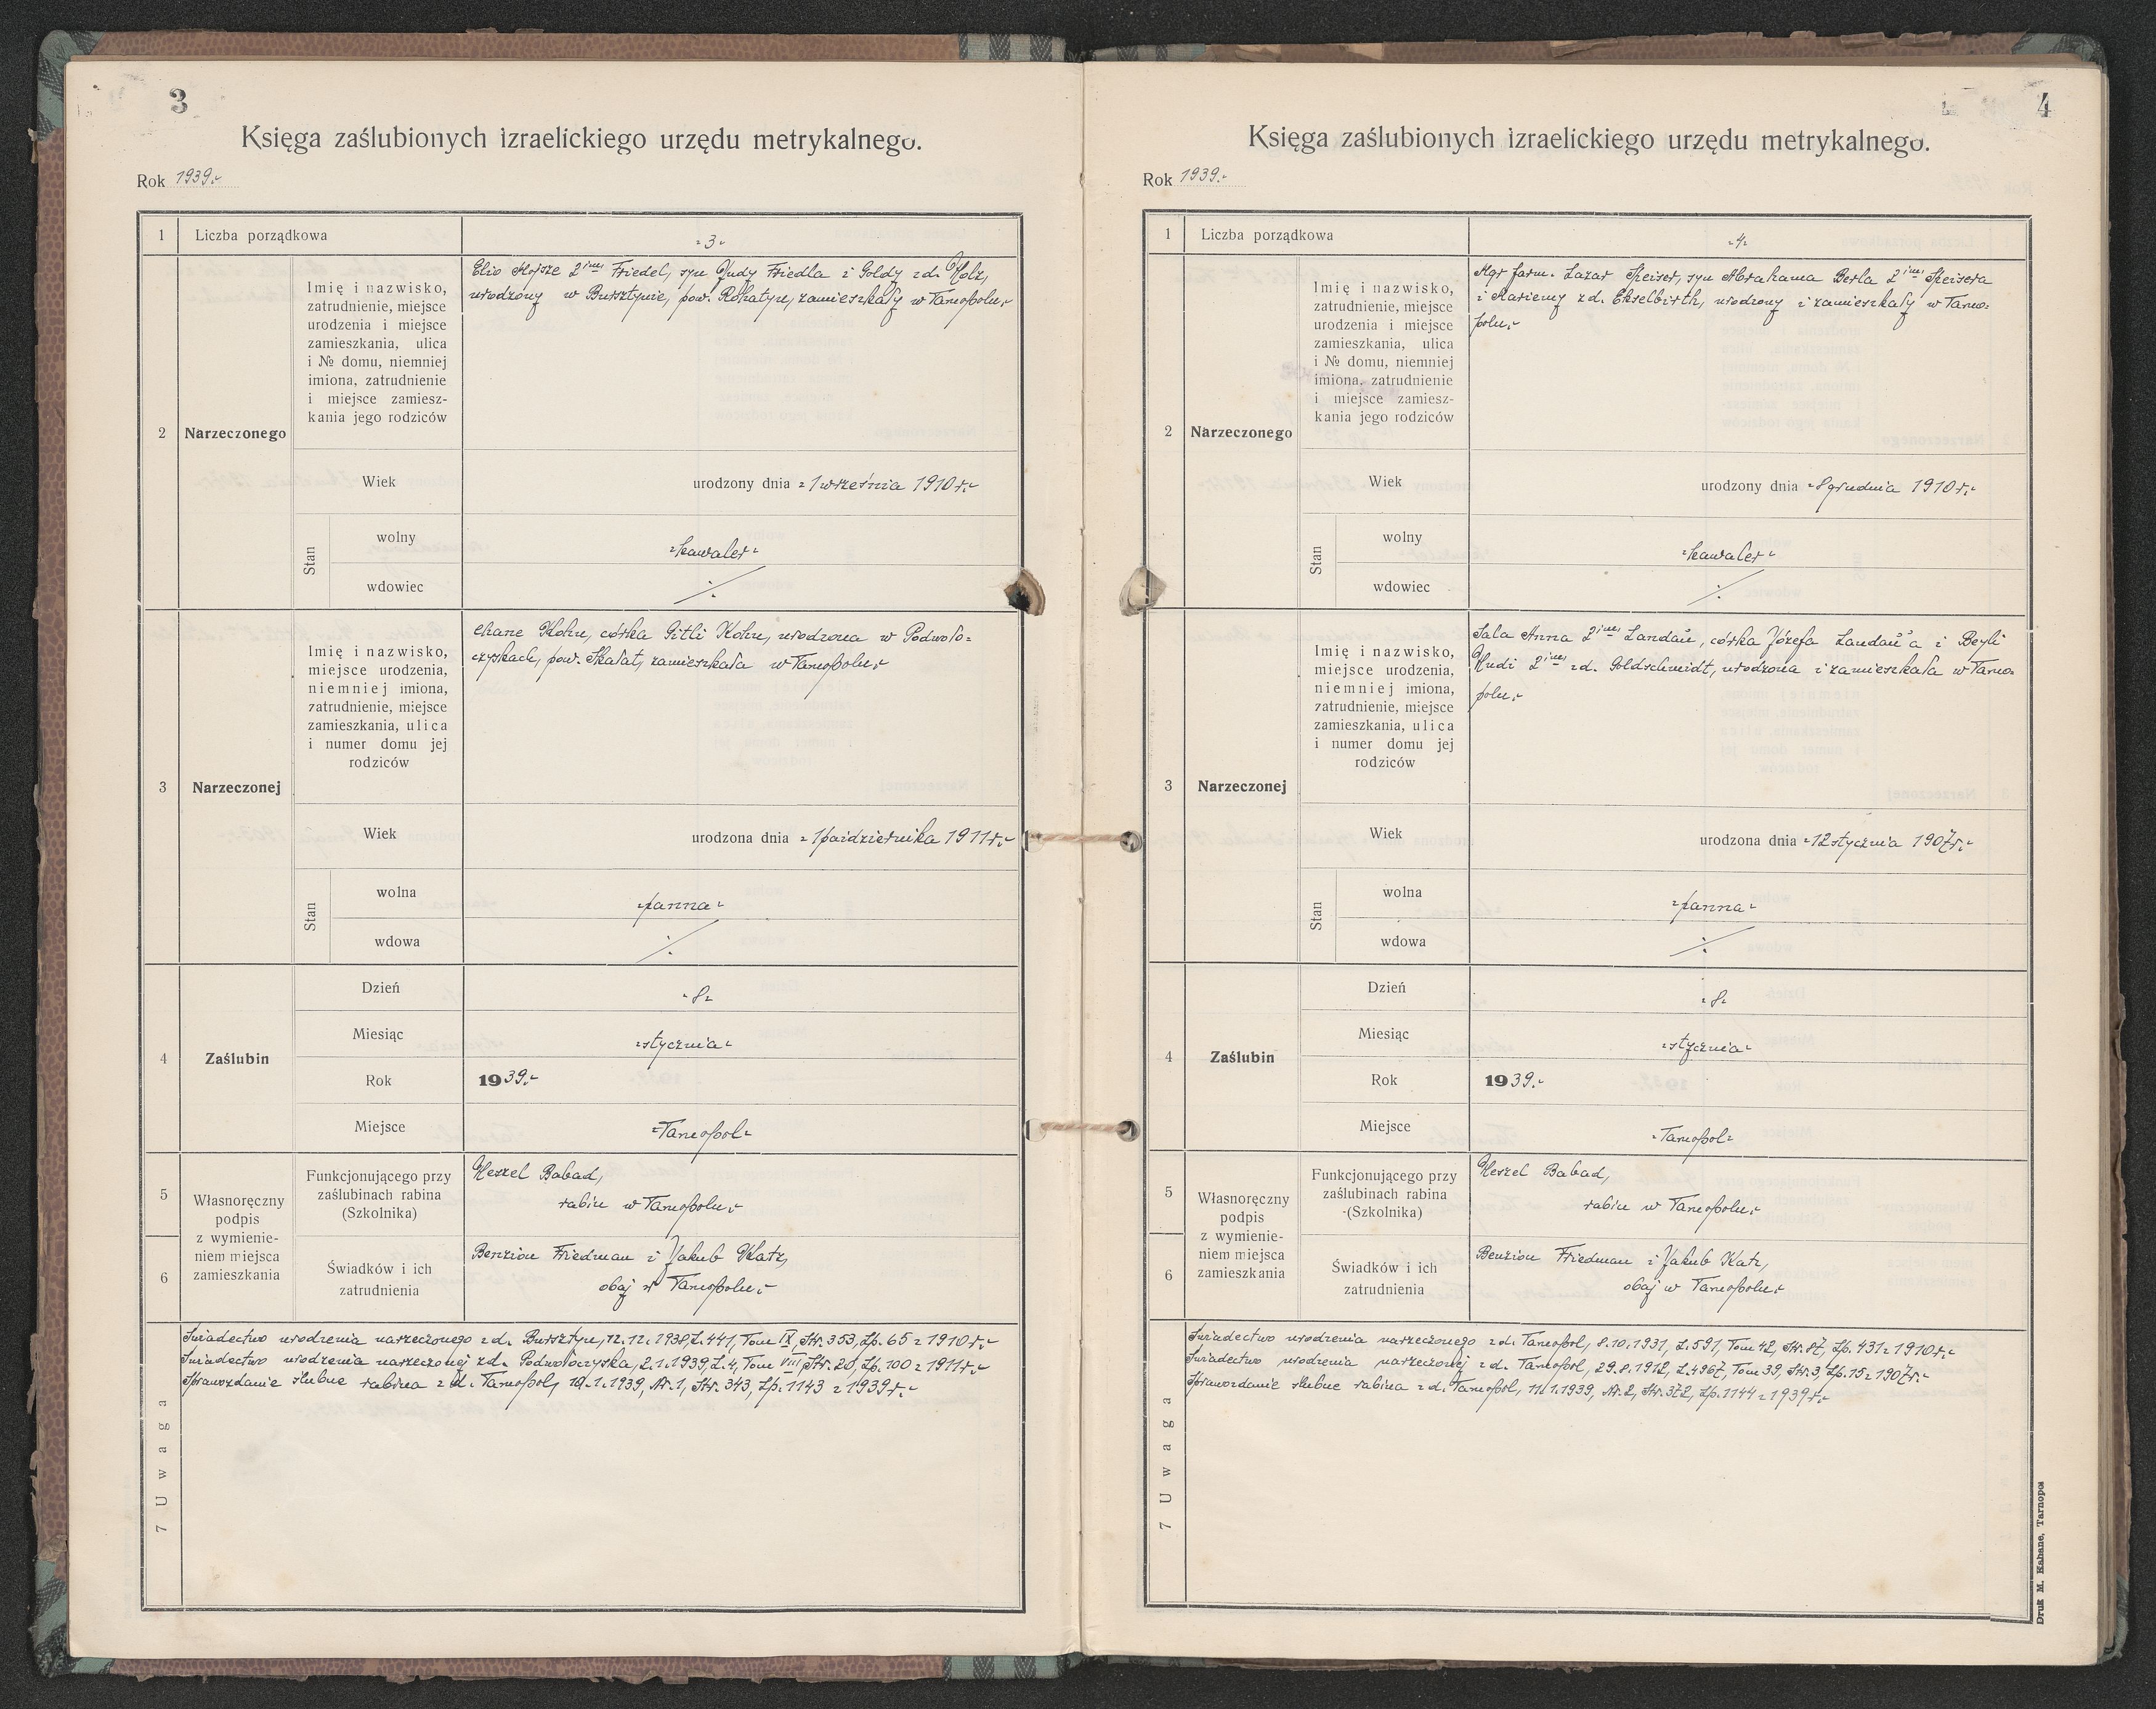 3
Księga zaślubionych izraelickiego urzędu metrykalnego.
Rok 1939.-
1 Liczba porządkowa -3-
2 Narzeczonego
Imię i nazwisko,
zatrudnienie, miejsce
urodzenia i miejsce
zamieszkania, ulica
i № domu, niemniej
imiona, zatrudnienie
i miejsce zamiesz-
kania jego rodziców
Elio Mojsze 2 im. Friedel, syn Judy Friedla i Goldy zd. Holz,
urodzony w Bursztynie, pow. Rohatyn, zamieszkały w Tarnopolu.-
Wiek urodzony dnia -1 września 1910 r.-
Stan
wolny -kawaler-
wdowiec ⁒
3 Narzeczonej
Imię i nazwisko,
miejsce urodzenia,
niemniej imiona,
zatrudnienie, miejsce
zamieszkania, ulica
i numer domu jej
rodziców
Chane Kohn, córka Gitli Kohn, urodzona w Podwoło-
czyskach, pow. Skałat, zamieszkała w Tarnopolu.-
Wiek urodzona dnia -1 października 1911 r.-
Stan
wolna -panna-
wdowa ⁒
4 Zaślubin
Dzień -8-
Miesiąc -stycznia-
Rok 1939.-
Miejsce -Tarnopol-
5
6
Własnoręczny
podpis
z wymienie-
niem miejsca
zamieszkania
Funkcjonującego przy
zaślubinach rabina
(Szkolnika)
Heszel Babad,
rabin w Tarnopolu.-
Świadków i ich
zatrudnienia
Benzion Friedman i Jakub Katz,
obaj w Tarnopolu.-
7 Uwaga
Świadectwo urodzenia narzeczonego z d. Bursztyn, 12.12.1938, L.441, Tom IX, Str. 353, Lp. 65 z 1910 r.-
Świadectwo urodzenia narzeczonej z d. Podwołoczyska, 2.1.1939, L.4, Tom VIII, Str. 20, Lp. 100 z 1911 r.-
Sprawozdanie ślubne rabina z d. Tarnopol, 10.1.1939, Nr. 1, Str. 343, Lp. 1143 z 1939 r.-
4
Księga zaślubionych izraelickiego urzędu metrykalnego.
Rok 1939.-
1 Liczba porządkowa -4-
2 Narzeczonego
Imię i nazwisko,
zatrudnienie, miejsce
urodzenia i miejsce
zamieszkania, ulica
i № domu, niemniej
imiona, zatrudnienie
i miejsce zamiesz-
kania jego rodziców
Mgr farm. Lazar Speiser, syn Abrahama Berla 2 im. Speisera
i Mariemy z d. Ekselbirth, urodzony i zamieszkały w Tarno-
polu.-
Wiek urodzony dnia -8 grudnia 1910 r.-
Stan
wolny -kawaler-
wdowiec ⁒
3 Narzeczonej
Imię i nazwisko,
miejsce urodzenia,
niemniej imiona,
zatrudnienie, miejsce
zamieszkania, ulica
i numer domu jej
rodziców
Sala Anna 2 im. Landau, córka Józefa Landau'a i Beyli
Hudi 2 im. z d. Goldschmidt, urodzona i zamieszkała w Tarno-
polu.-
Wiek urodzona dnia -12 stycznia 1907 r.-
Stan
wolna -panna-
wdowa ⁒
4 Zaślubin
Dzień -8-
Miesiąc -stycznia-
Rok 1939.-
Miejsce -Tarnopol-
5
6
Własnoręczny
podpis
z wymienie-
niem miejsca
zamieszkania
Funkcjonującego przy
zaślubinach rabina
-(Szkolnika)
Heszel Babad,
rabin w Tarnopolu.-
Świadków i ich
zatrudnienia
Benzion Friedman i Jakub Katz,
obaj w Tarnopolu.-
7 Uwaga
Świadectwo urodzenia narzeczonego z d. Tarnopol, 8.10.1931, L.591, Tom 42, Str. 87, Lp. 431 z 1910 r.-
Świadectwo urodzenia narzeczonej z d. Tarnopol, 29.8.1912, L.4967, Tom 39, Str. 3, Lp. 15 z 1907 r.-
Sprawozdanie ślubne rabina z d. Tarnopol, 11.1.1939, Nr. 2, Str. 372, Lp. 1144 z 1939 r.-
Druk M. Kahane, Tarnopol